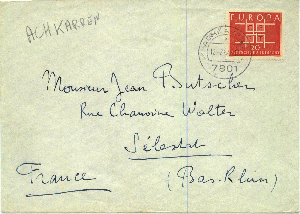 ACHKARREN
EUROPA
20
7801
Monsieur Jean Butscher
Rue Chanoine Walter
Sélestat
France
(Bas-Rhin)